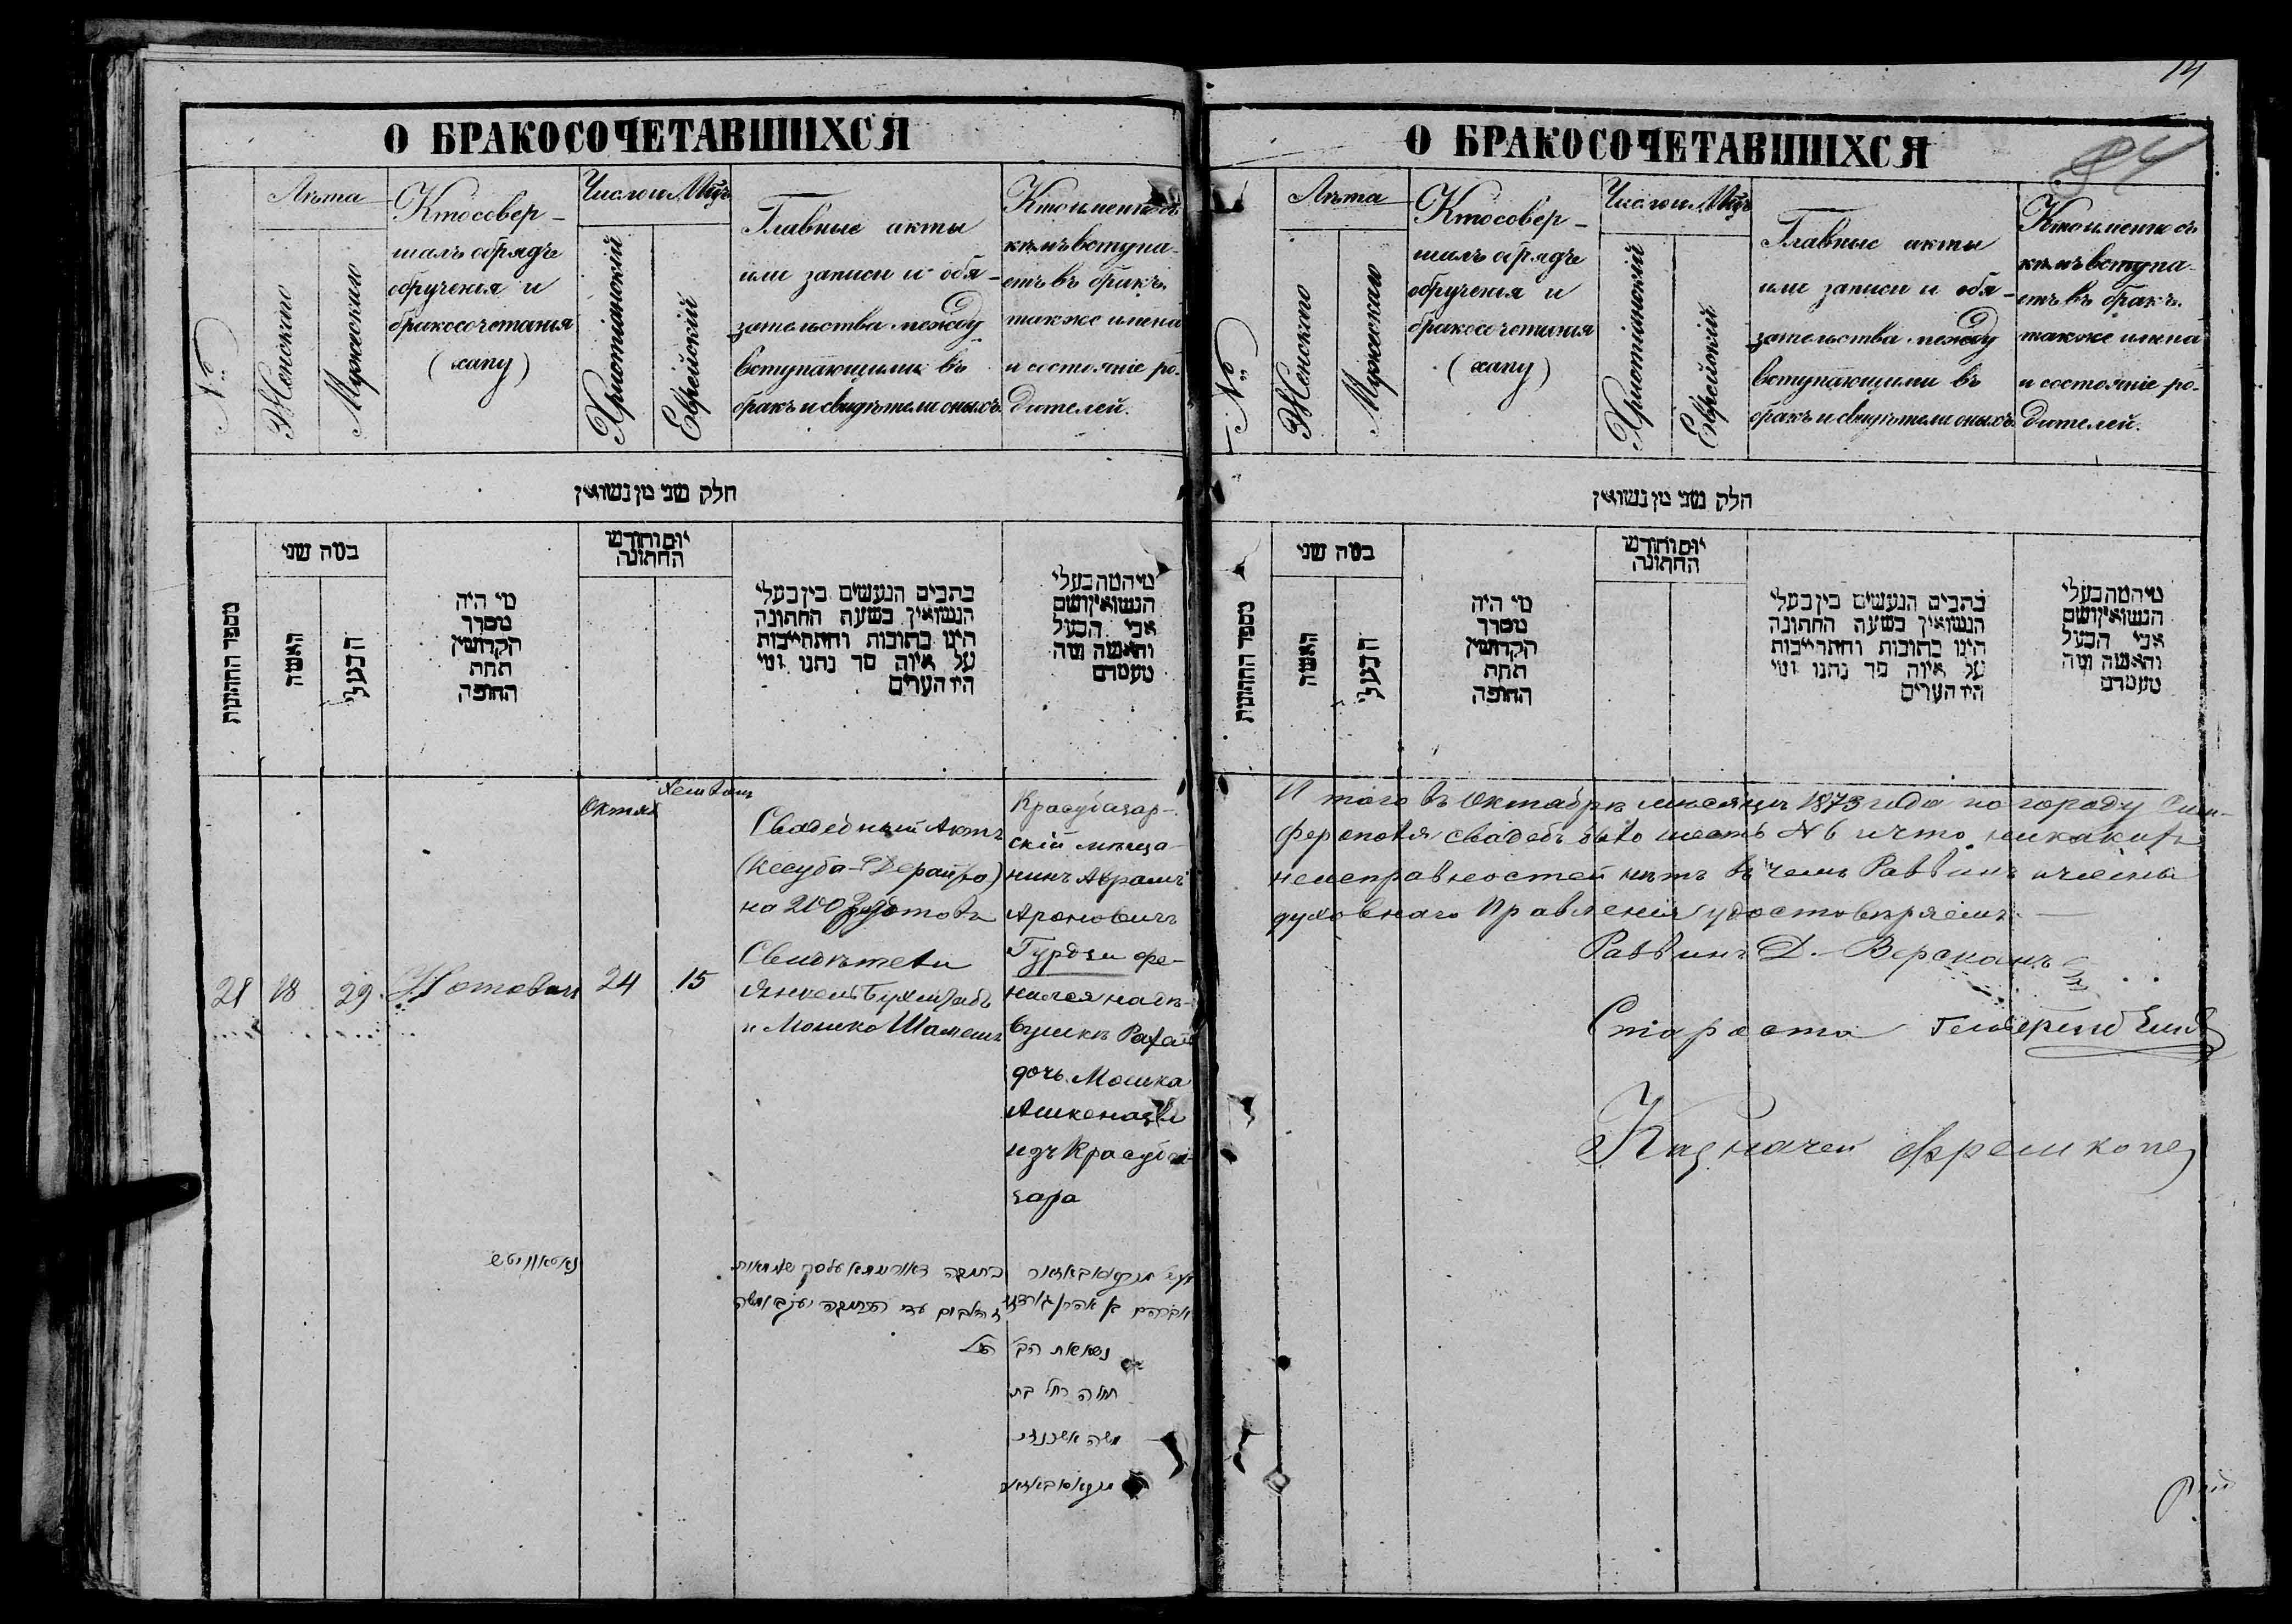 14
84
О БРАКОСОЧЕТАВШИХСЯ
№
Лѣта
Женскаго
Мужескаго
Кто совер-
шалъ обрядъ
обрученія и
бракосочетанія
(хапу)
Число и Мцъ
Христіанскій
Еврейскій
Главные акты
или записи и обя-
зательства между
вступающими въ
бракъ и свидѣтели оныхъ.
Кто именно съ
кѣмъ вступа-
етъ въ бракъ.
также имена
и состояніе ро-
дителей.
חלק שני מן נשואין
מספר החתונות
במה שני
האשה
הבעל
מי היה
מסדר
הקדושין
תחת
החופה
יום וחודש
החתונה
כתבים הנעשים בין בעלי
הנשואין בשעת החתונה
היינו כתובות והתחייבות
על איזה סך נתנו ומי
היו העדים
מי המה בעלי
הנשואין ושם
אבי הבעל
והאשה ומה
מעמדם
21
18
29
Нотовичъ
Октяб
24
Хешванъ
15
Свадебный Актъ
на 200 злотовъ
Свидѣтели
и Мошко Шамешъ
Красубазар-
скій мѣща-
нинъ Аврамъ
Ароновичъ
Гурдзи же-
нился на дѣ-
вушкѣ
дочь Мошка
Ашкенази
изъ Красуба-
зара
נאטאוויטש
אברהם בן אהרן גורדזי
נשא את הב׳
רחל בת
משה אשכנזי
О БРАКОСОЧЕТАВШИХСЯ
№
Лѣта
Женскаго
Мужескаго
Кто совер-
шалъ обрядъ
обрученія и
бракосочетанія
(хапу)
Число и Мцъ
Христіанскій
Еврейскій
Главные акты
или записи и обя-
зательства между
вступающими въ
бракъ и свидѣтели оныхъ.
Кто именно съ
кѣмъ вступа-
етъ въ бракъ.
также имена
и состояніе ро-
дителей.
חלק שני מן נשואין
מספר החתונות
במה שני
האשה
הבעל
מי היה
מסדר
הקדושין
תחת
החופה
יום וחודש
החתונה
כתבים הנעשים בין בעלי
הנשואין בשעת החתונה
היינו כתובות והתחייבות
על איזה סך נתנו ומי
היו העדים
מי המה בעלי
הנשואין ושם
אבי הבעל
והאשה ומה
מעמדם
Итого въ Октябрѣ мѣсяцѣ 1873 года по городу Сим-
ферополя свадебъ было шесть № 6 и что никакихъ
неисправностей нѣтъ въ чемъ Раввинъ и члены
духовнаго Правленія удостовѣряемъ. —
Раввинъ Д.
Староста
Казначей